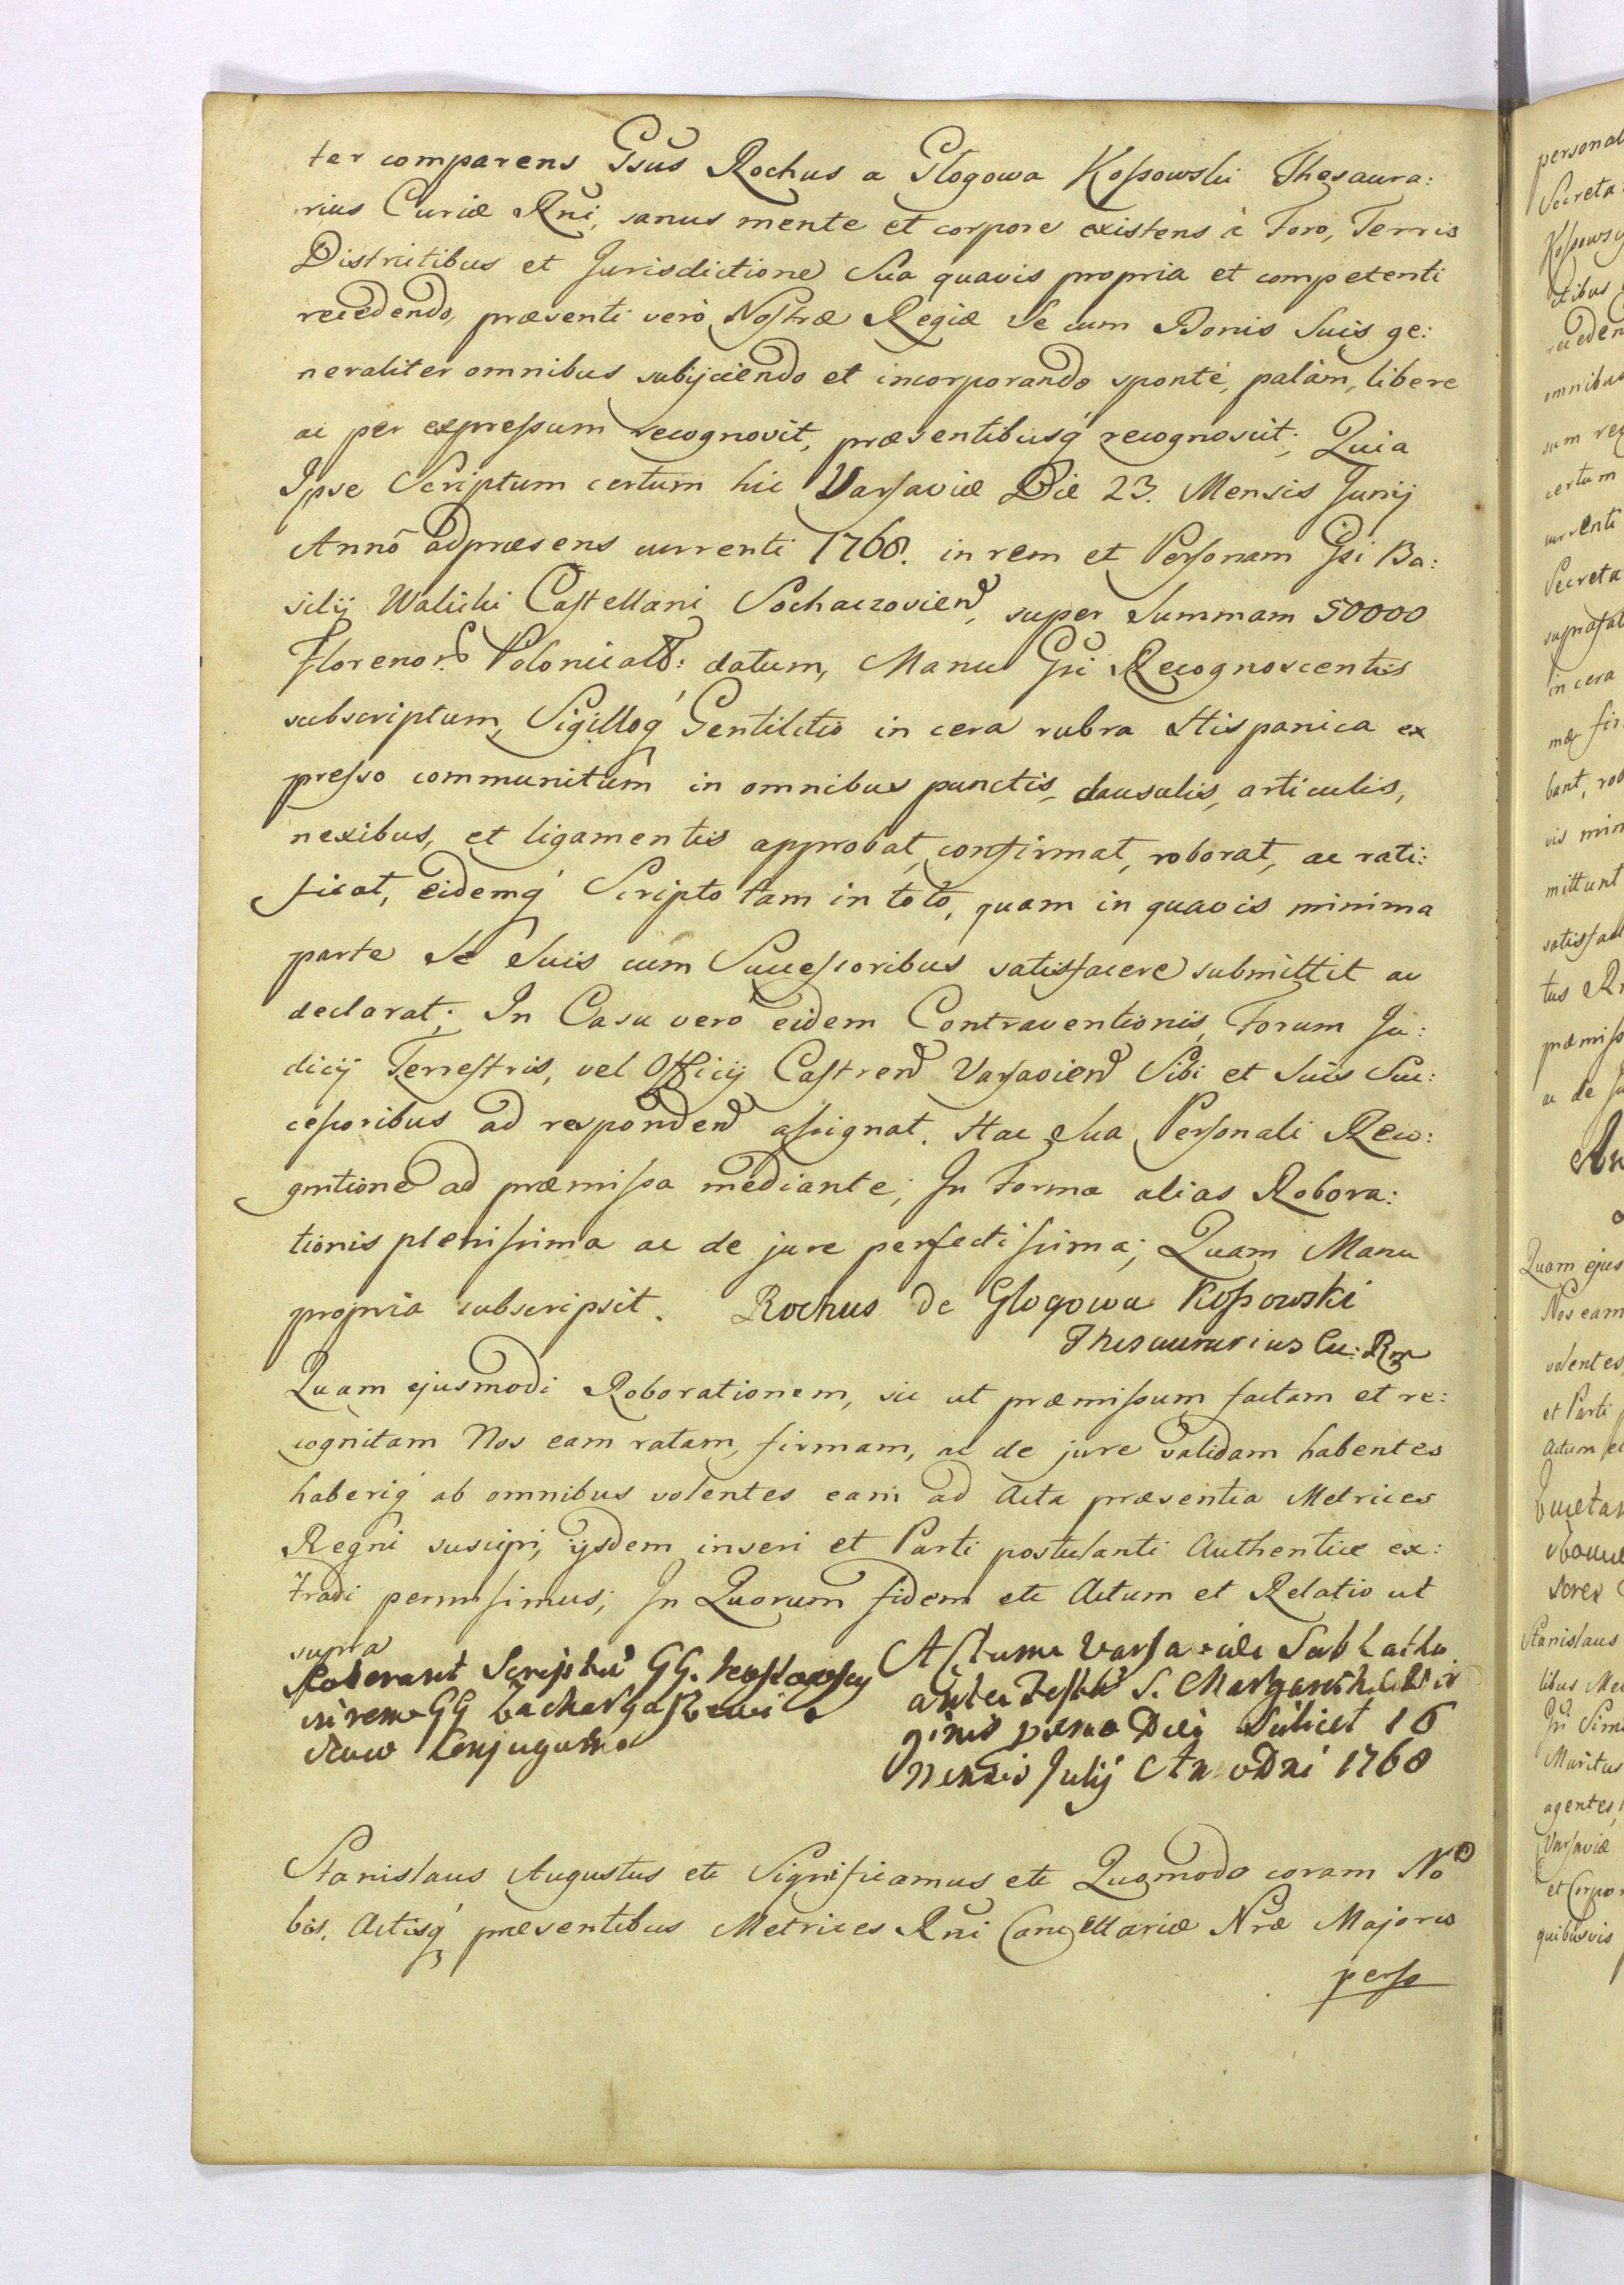 ter comparens Gsus Rochus a Glogowa Kossowski Thesaura:
rius Curiæ Rni, sanus mente et corpore existens à Foro, Terris
Districtibus et Jurisdictione Sua quavis propria et competenti
recedendo, præsenti verò Nostræ Regiæ Se cum Bonis Suis ge:
neraliter omnibus subijciendo et incorporando sponte, palàm, libere
ac per expressum recognovit, præsentibusq́ recognoscit; Quia
Ipse Scriptum certum hic Varsaviæ Die 23. Mensis Junij
Annô adpræsens currenti 1768. in rem et Personam Gsi Ba:
silij Walicki Castellani Sochaczovien, super Summam 50000
Florenor. Polonical: datum, Manu Gsi Recognoscentis
subscriptum, Sigilloq́ Gentilitio in cera rubra Hispanica ex
presso communitum in omnibus punctis, clausulis, articulis,
nexibus, et ligamentis approbat, confirmat, roborat, ac rati:
ficat, eidemq́ Scripto tam in toto, quam in quavis minima
parte Se Suis cum Successoribus satisfacere submittit ac
declarat; In Casu verò eidem Contraventionis, Forum Ju:
dicij Terrestris, vel Officij Castren Varsavien Sibi et Suis Suc:
cessoribus ad responden assignat. Hac Sua Personali Reco:
gnitione ad præmissa mediante; In Forma alias Robora:
tionis plenissima ac de jure perfectissima; Quam Manu
propria subscripsit. Rochus de Glogowa Kossowski
Thesaurarius Cu: R
Quam ejusmodi Roborationem, sic ut præmissum factam et re:
cognitam Nos eam ratam, firmam, ac de jure validam habentes
haberiq́ ab omnibus volentes eam ad Acta præsentia Metrices
Regni suscipi, ijsdem inseri et Parti postulanti Authentice ex:
tradi permisimus; In Quorum fidem etc Actum et Relatio ut
supra
Roborant Scriptu GG. Kossowscy
in rem GG
Conjugum
Actum Varsaviæ Sabbatho
ante Festu S. Margarithæ Vir
ginis Die Scilicet 16
Mensis Julij Anno Dni 1768
Stanislaus Augustus etc Significamus etc Quomodo coram No
bis, Actisq́ præsentibus Metrices Rni Cancellariæ Nræ Majoris
perso
personal
Secreta
Kossows
ctibus
receden
omnibus
sum rec
certum
currenti
Secreta
suprafat
in cera
bant, rob
vis min
mittunt
satisfac
præmiss
Quam ejus
Nos eam
volentes
et Parti
Actum et
Stanislaus
libus Me
Maritus
agentes
Varsaviæ
et Corpor
quibusvis